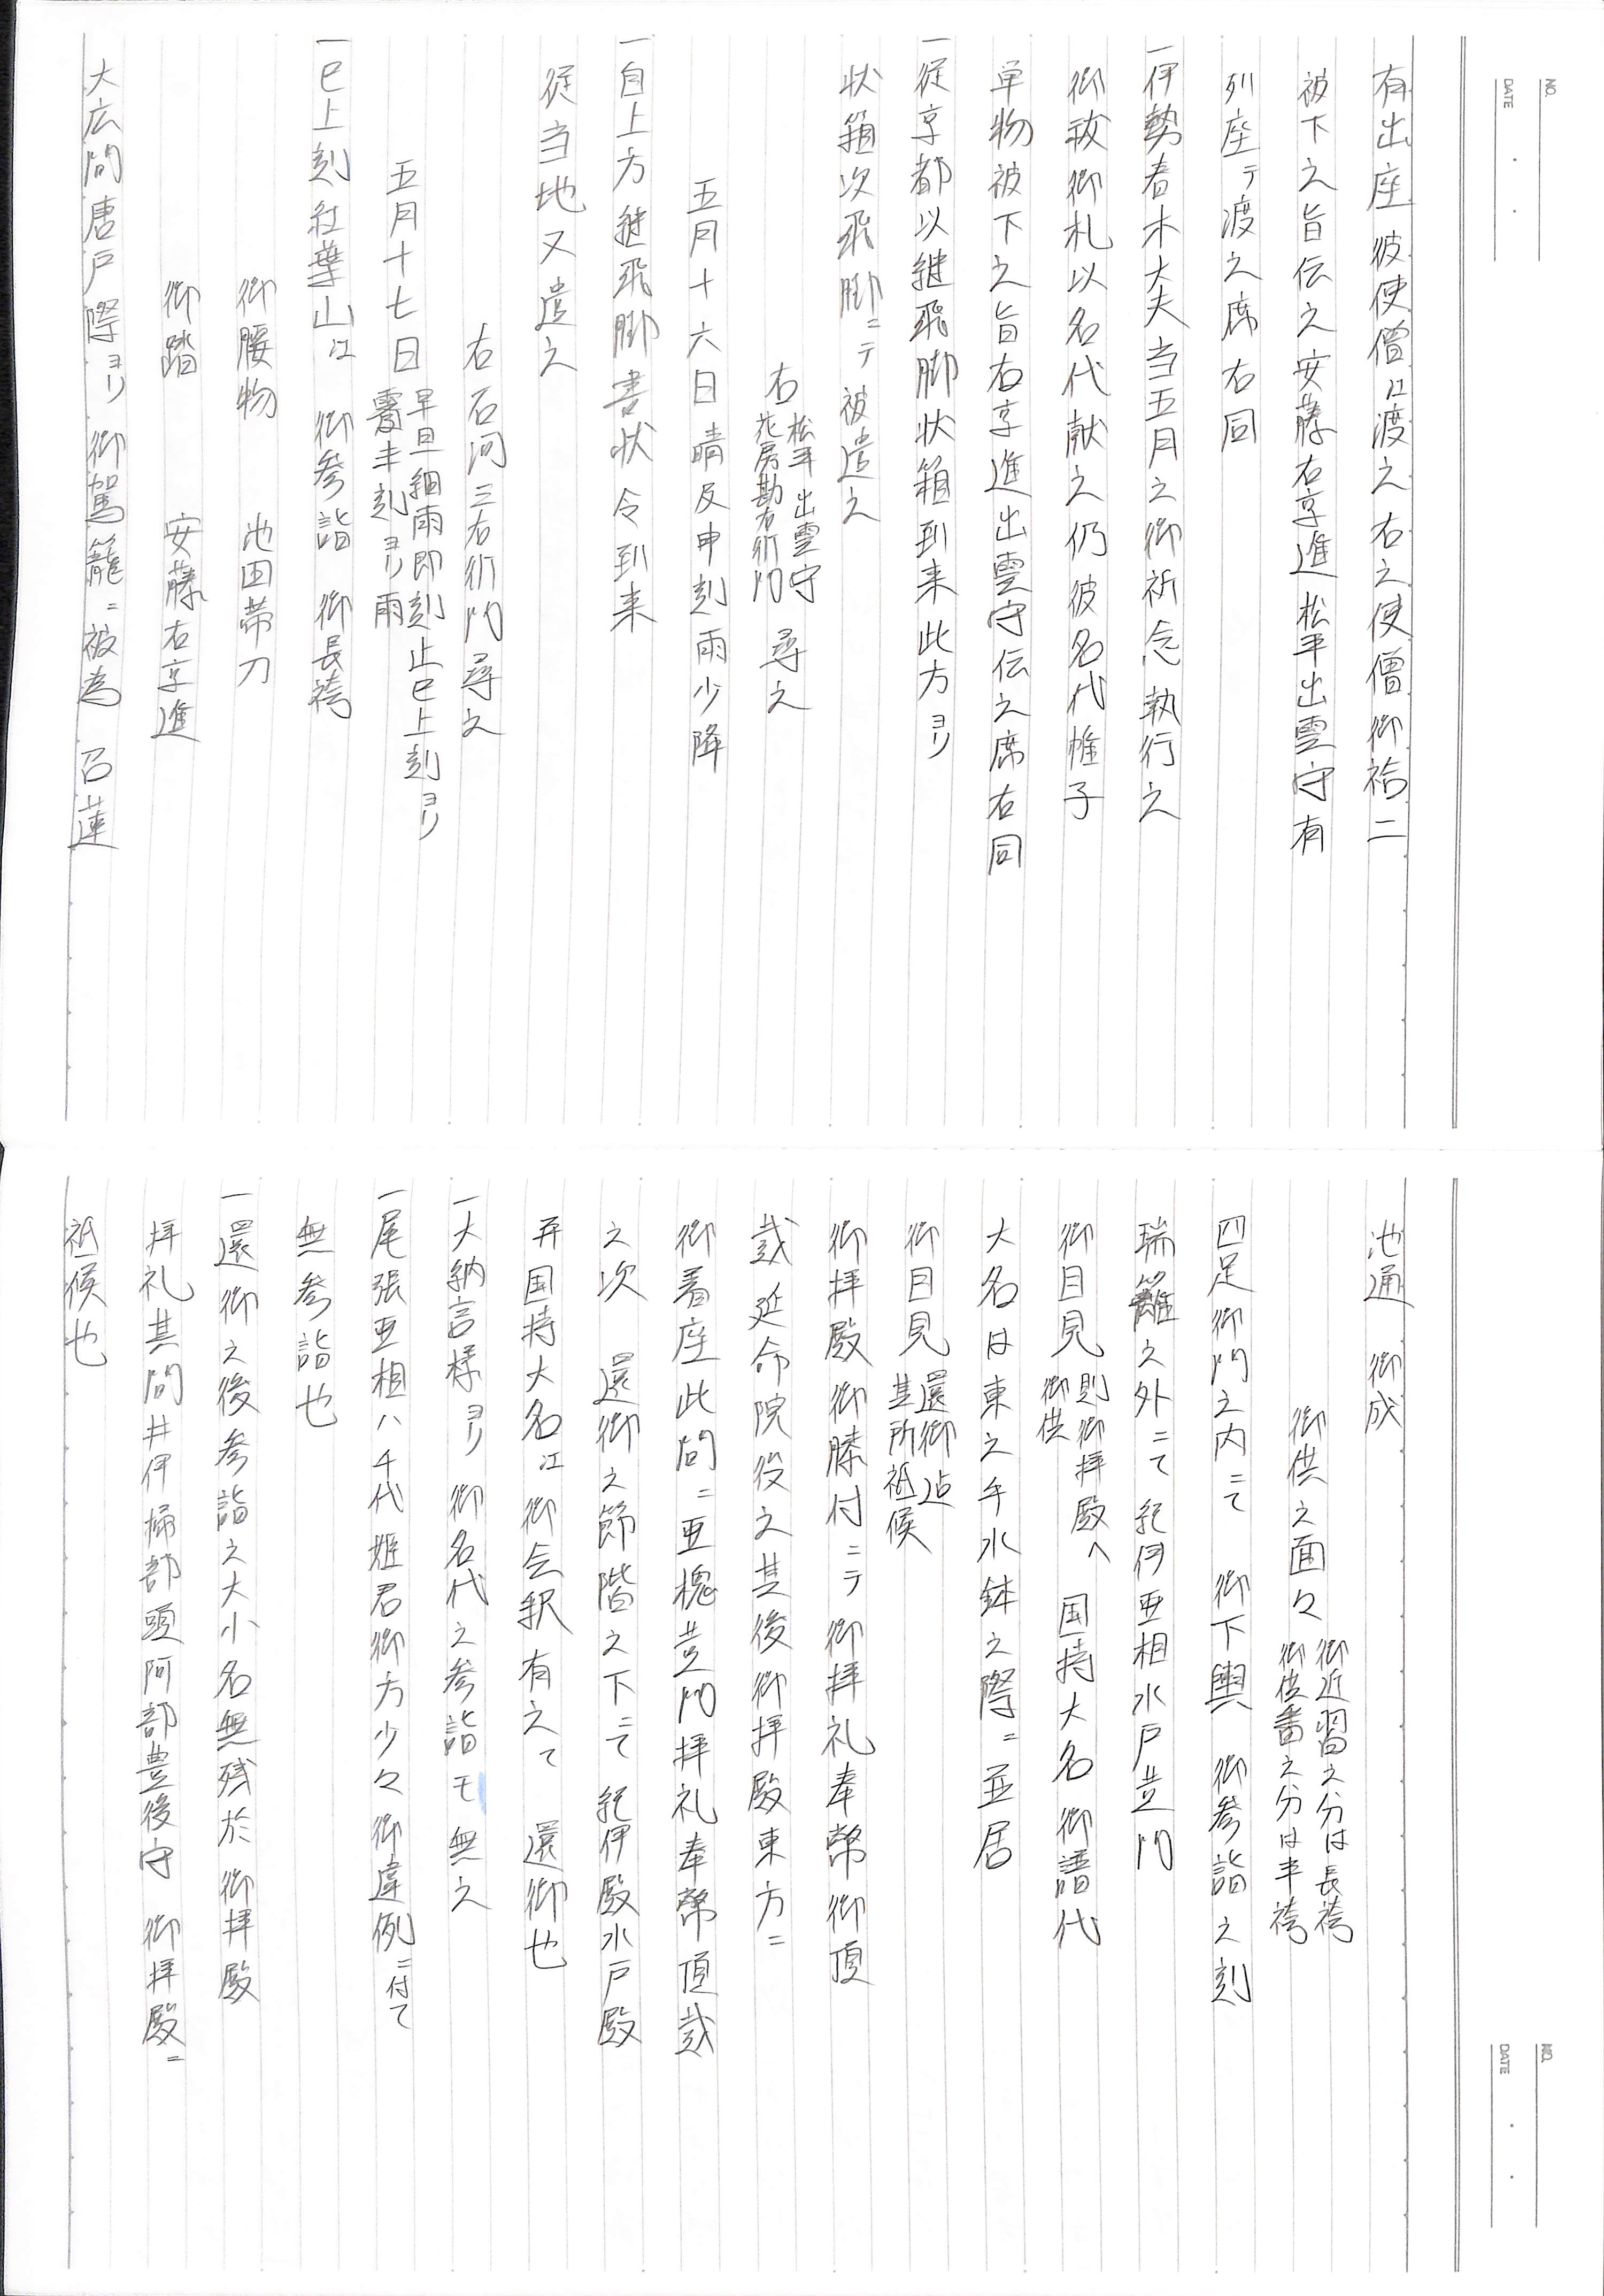 NO.
DATE
有出座彼使僧江渡之右之使僧御袷二
被下之旨伝之安藤右京進松平出雲守有
列座テ渡之席右同
一伊勢春木大夫当五月之御祈念執行之
御祓御札以名代献之仍彼名代帷子
単物被下之旨右京進出雲守伝之席右同
一従京都以継飛脚状箱到来此方ヨリ
状箱次飛脚ニテ被遣之
右 松平出雲守 花房勘右衛門 尋之
五月十六日晴及申刻雨少降
一自上方継飛脚書状令到来
従当地又遣之
右石河三右衛門尋之
五月十七日 早旦細雨即刻止巳上刻ヨリ 雷半刻ヨリ雨
一巳上刻紅葉山江 御参詣 御長袴
御腰物 池田帯刀
御踏 安藤右京進
大広間唐戸際ヨリ御駕籠ニ被為 召蓮
NO.
DATE
池通 御成
御供之面々 御近習之分は長袴 御供番之分は半袴
四足御門之内ニて 御下輿 御参詣之刻
瑞籬之外ニて紀伊亜相水戸黄門
御目見 則御拝殿へ 御供 国持大名御譜代
大名は東之手水鉢之際ニ並居
御目見 還御迄 其所祗候
御拝殿御膝付ニテ御拝礼奉幣御頂
戴延命院役之其後御拝殿東方ニ
御着座此間ニ亜槐黄門拝礼奉幣頂戴
之次 還御之節階之下ニて紀伊殿水戸殿
并国持大名江御会釈有之て 還御也
一大納言様ヨリ御名代之参詣モ無之
一尾張亜相ハ千代姫君御方少々御違例ニ付て
無参詣也
一還御之後参詣之大小名無残於御拝殿
拝礼其間井伊掃部頭阿部豊後守 御拝殿ニ
祗候也